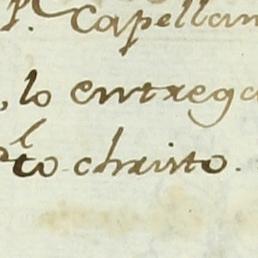 P. Capellan
, lo entrega
to christo.